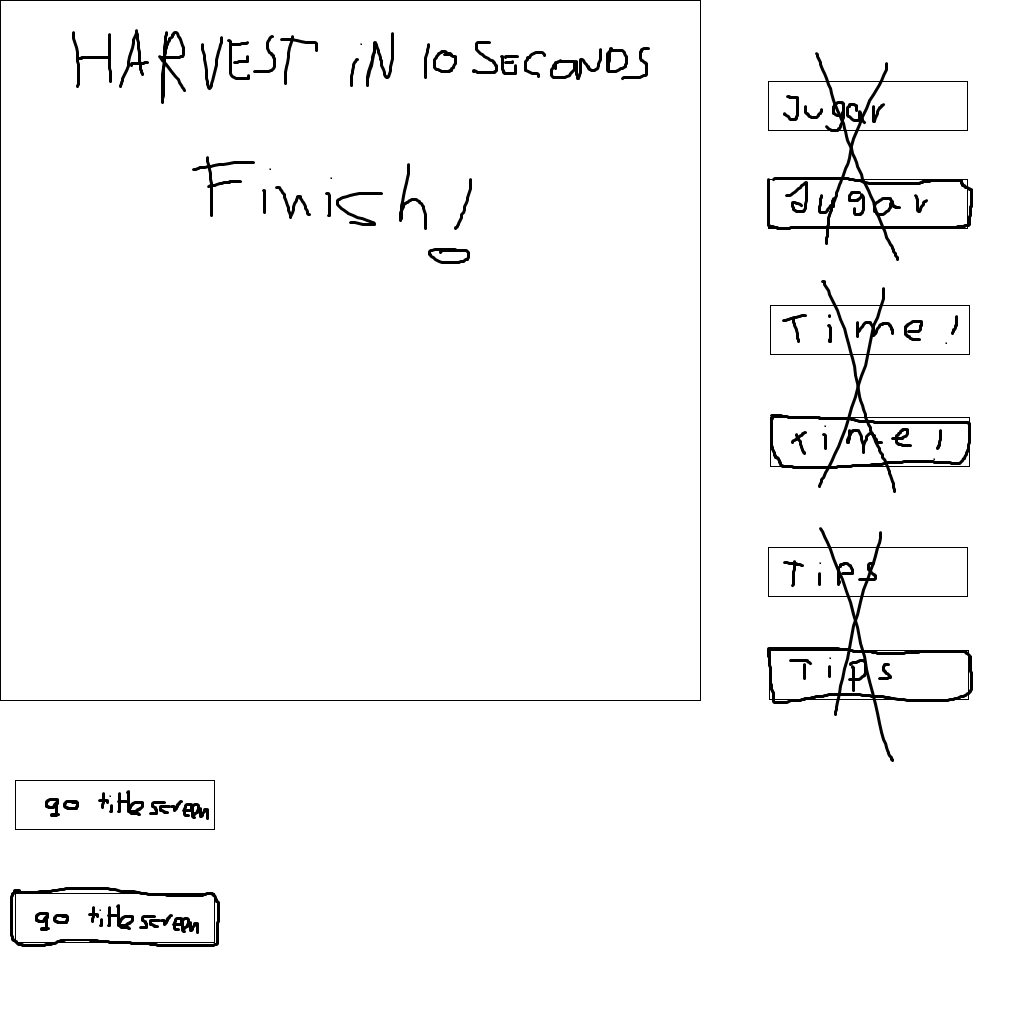 HARVEST iN 10 SECONDS
Finish!
Jugar
Jugar
Time!
Time!
Tips
Tips
go titlescreen
go titlescreen